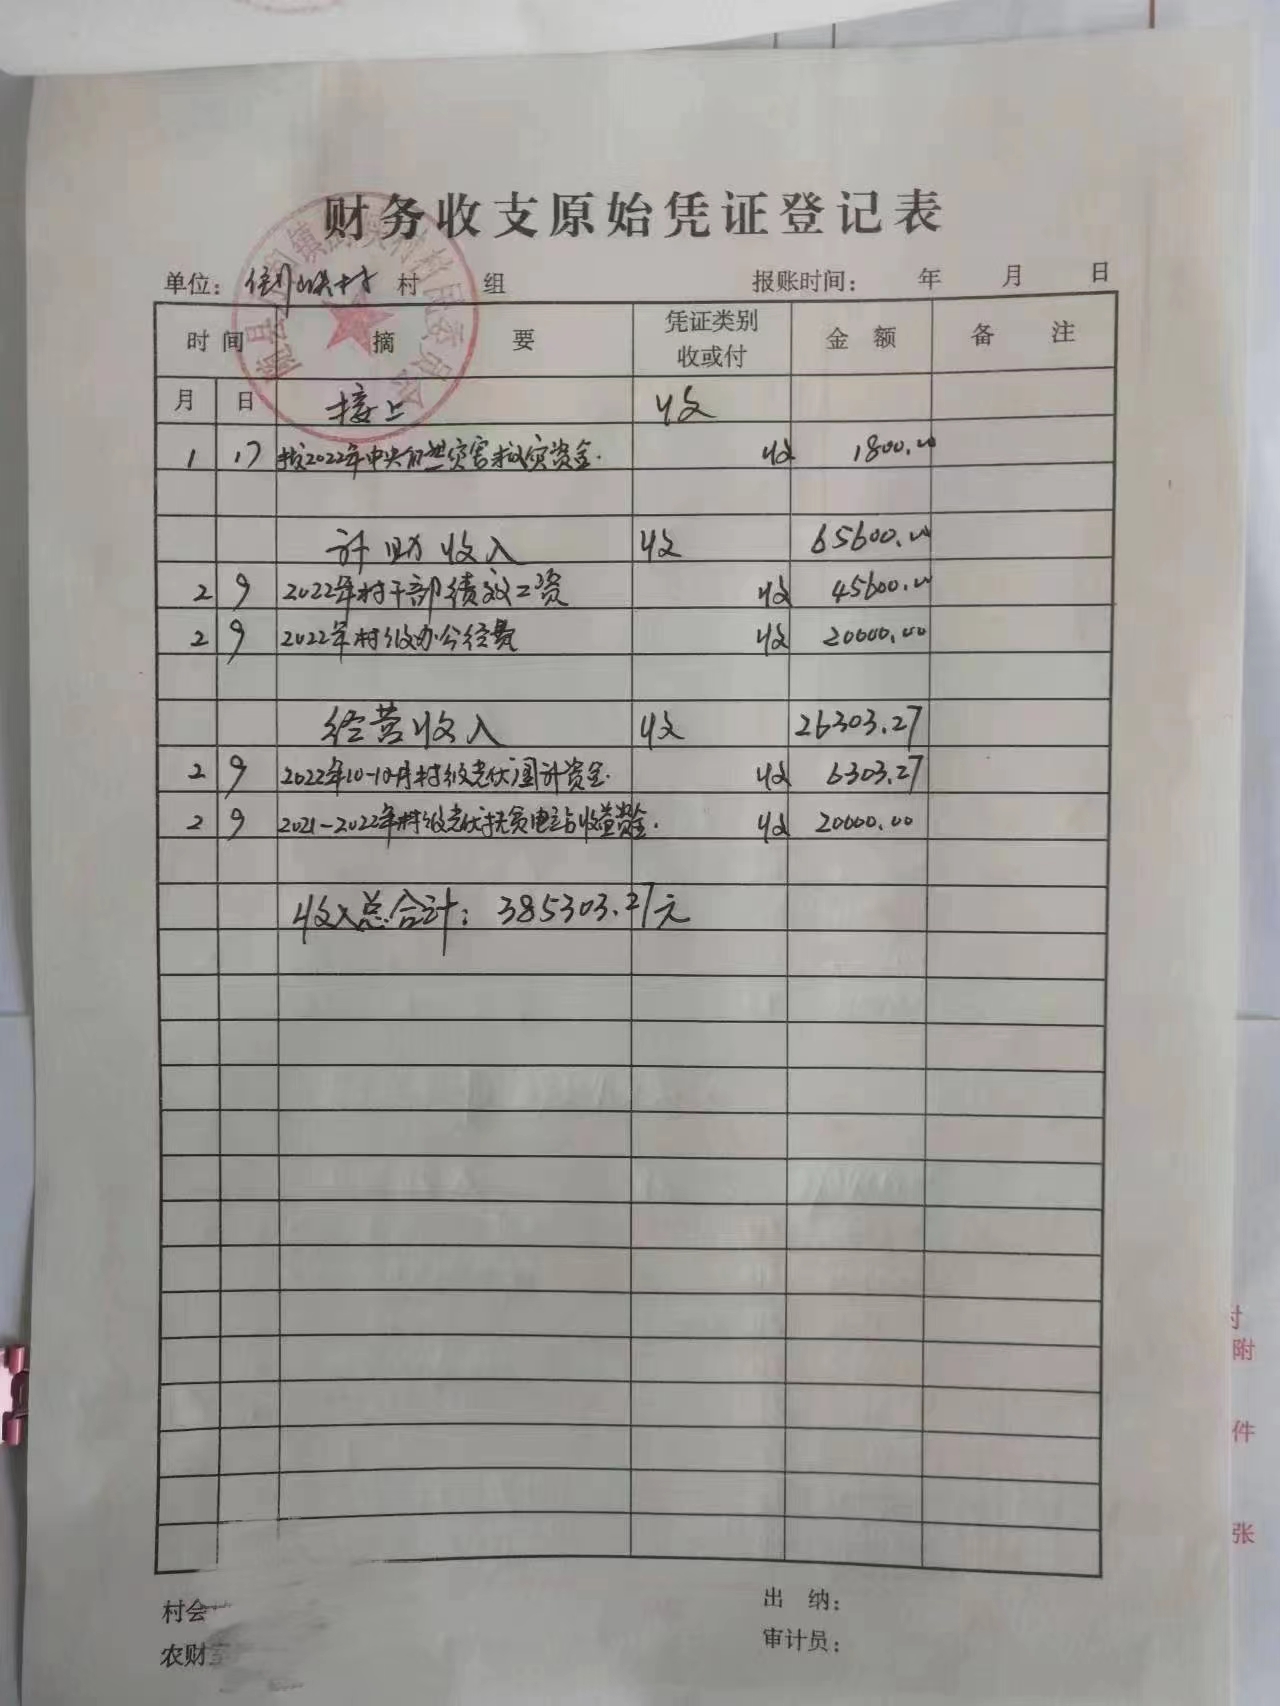 财务收支原始凭证登记表
单位: 村 组 报账时间: 年 月 日
时间 摘 要 凭证类别 收或付 金 额 备 注
月 日 接上 收
1 17 拨2022年中央自然灾害救灾资金. 收 1800.00
计助收入 收 65600.00
2 9 2022年村干部绩效工资 收 45600.00
2 9 2022年村级办公经费 收 20000.00
经营收入 收 26303.27
2 9 2022年10-12月村级光伏 资金. 收 6303.27
2 9 2021-2022年村级光伏扶贫电站收益资金. 收 20000.00
收入总合计: 385303.27元
村会 出 纳:
农财室 审计员:
付
附
件
张